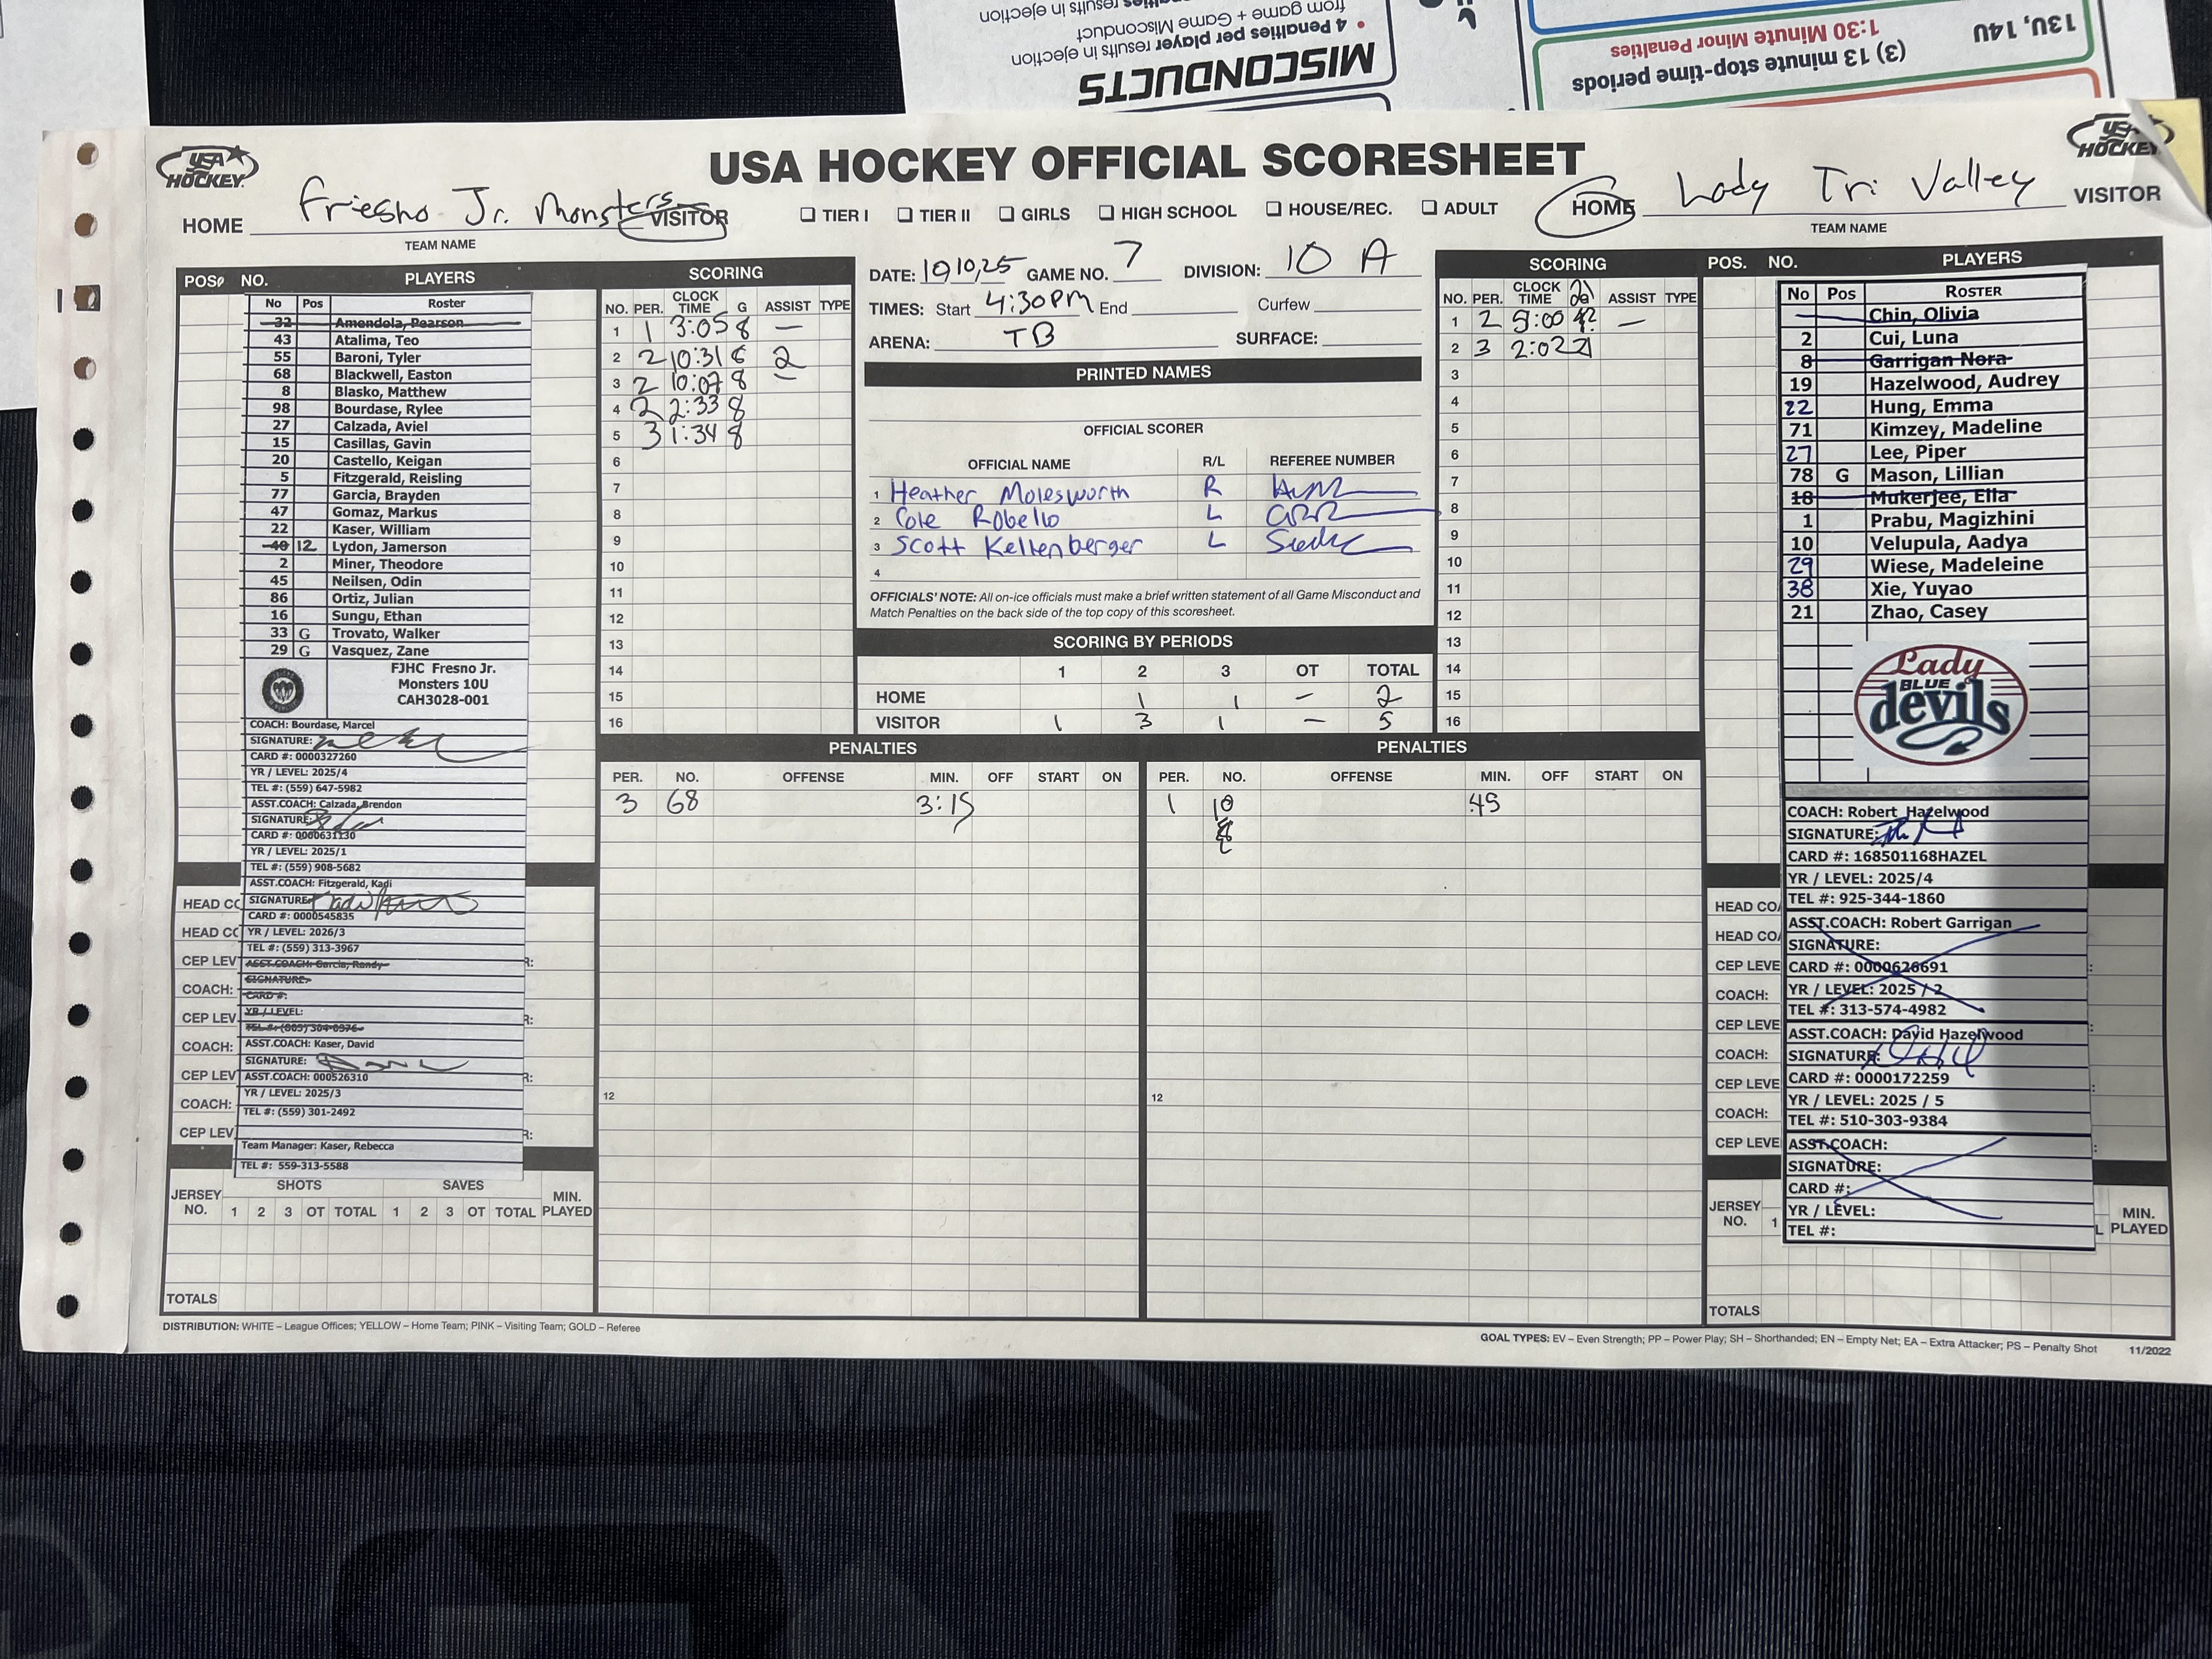 13U, 14U
(3) 13 minute stop-time periods
1:30 Minute Minor Penalties
MISCONDUCTS
• 4 Penalties per player results in ejection
from game + Game Misconduct
USA HOCKEY
USA HOCKEY OFFICIAL SCORESHEET
USA HOCKEY
HOME Fresno Jr. Monsters VISITOR
TEAM NAME
☐ TIER I ☐ TIER II ☐ GIRLS ☐ HIGH SCHOOL ☐ HOUSE/REC. ☐ ADULT
HOME Lady Tri Valley VISITOR
TEAM NAME
POS. NO. PLAYERS
No Pos Roster
32 Amendola, Pearson
43 Atalima, Teo
55 Baroni, Tyler
68 Blackwell, Easton
8 Blasko, Matthew
98 Bourdase, Rylee
27 Calzada, Aviel
15 Casillas, Gavin
20 Castello, Keigan
5 Fitzgerald, Reisling
77 Garcia, Brayden
47 Gomaz, Markus
22 Kaser, William
40 12 Lydon, Jamerson
2 Miner, Theodore
45 Neilsen, Odin
86 Ortiz, Julian
16 Sungu, Ethan
33 G Trovato, Walker
29 G Vasquez, Zane
FJHC Fresno Jr.
Monsters 10U
CAH3028-001
COACH: Bourdase, Marcel
SIGNATURE:
CARD #: 0000327260
YR / LEVEL: 2025/4
TEL #: (559) 647-5982
ASST.COACH: Calzada, Brendon
SIGNATURE:
CARD #: 0000631130
YR / LEVEL: 2025/1
TEL #: (559) 908-5682
ASST.COACH: Fitzgerald, Kadi
SIGNATURE:
CARD #: 0000545835
YR / LEVEL: 2026/3
TEL #: (559) 313-3967
ASST.COACH: Garcia, Randy
SIGNATURE:
CARD #:
YR / LEVEL:
TEL #: (805) 304-0376
ASST.COACH: Kaser, David
SIGNATURE:
ASST.COACH: 000526310
YR / LEVEL: 2025/3
TEL #: (559) 301-2492
Team Manager: Kaser, Rebecca
TEL #: 559-313-5588
HEAD CO
HEAD CO
CEP LEV R:
COACH:
CEP LEV R:
COACH:
CEP LEV R:
COACH:
CEP LEV R:
SHOTS SAVES
JERSEY NO. 1 2 3 OT TOTAL 1 2 3 OT TOTAL MIN. PLAYED
TOTALS
SCORING
NO. PER. CLOCK TIME G ASSIST TYPE
1 1 3:05 8 —
2 2 10:31 8 2
3 2 10:07 8 —
4 2 2:33 8
5 3 1:34 8
6
7
8
9
10
11
12
13
14
15
16
DATE: 10,10,25 GAME NO. 7 DIVISION: 10 A
TIMES: Start 4:30pm End Curfew
ARENA: TB SURFACE:
PRINTED NAMES
OFFICIAL SCORER
OFFICIAL NAME R/L REFEREE NUMBER
1 Heather Molesworth R
2 Cole Robello L
3 Scott Keltenberger L
4
OFFICIALS' NOTE: All on-ice officials must make a brief written statement of all Game Misconduct and
Match Penalties on the back side of the top copy of this scoresheet.
SCORING BY PERIODS
1 2 3 OT TOTAL
HOME 1 1 — 2
VISITOR 1 3 1 — 5
SCORING
NO. PER. CLOCK TIME ASSIST TYPE
1 2 9:00 —
2 3 2:02 21
3
4
5
6
7
8
9
10
11
12
13
14
15
16
PENALTIES
PER. NO. OFFENSE MIN. OFF START ON
3 68 3:15
12
PENALTIES
PER. NO. OFFENSE MIN. OFF START ON
1 10 :45
12
POS. NO. PLAYERS
No Pos ROSTER
Chin, Olivia
2 Cui, Luna
8 Garrigan Nora
19 Hazelwood, Audrey
22 Hung, Emma
71 Kimzey, Madeline
27 Lee, Piper
78 G Mason, Lillian
18 Mukerjee, Ella
1 Prabu, Magizhini
10 Velupula, Aadya
29 Wiese, Madeleine
38 Xie, Yuyao
21 Zhao, Casey
Lady
BLUE
devils
COACH: Robert Hazelwood
SIGNATURE:
CARD #: 168501168HAZEL
YR / LEVEL: 2025/4
TEL #: 925-344-1860
ASST.COACH: Robert Garrigan
SIGNATURE:
CARD #: 0000626691
YR / LEVEL: 2025 / 2
TEL #: 313-574-4982
ASST.COACH: David Hazelwood
SIGNATURE:
CARD #: 0000172259
YR / LEVEL: 2025 / 5
TEL #: 510-303-9384
ASST.COACH:
SIGNATURE:
CARD #:
YR / LEVEL:
TEL #:
HEAD COA
HEAD COA
CEP LEVE
COACH:
CEP LEVE
COACH:
CEP LEVE
COACH:
CEP LEVE
JERSEY NO. 1 L MIN. PLAYED
TOTALS
DISTRIBUTION: WHITE – League Offices; YELLOW – Home Team; PINK – Visiting Team; GOLD – Referee
GOAL TYPES: EV – Even Strength; PP – Power Play; SH – Shorthanded; EN – Empty Net; EA – Extra Attacker; PS – Penalty Shot 11/2022